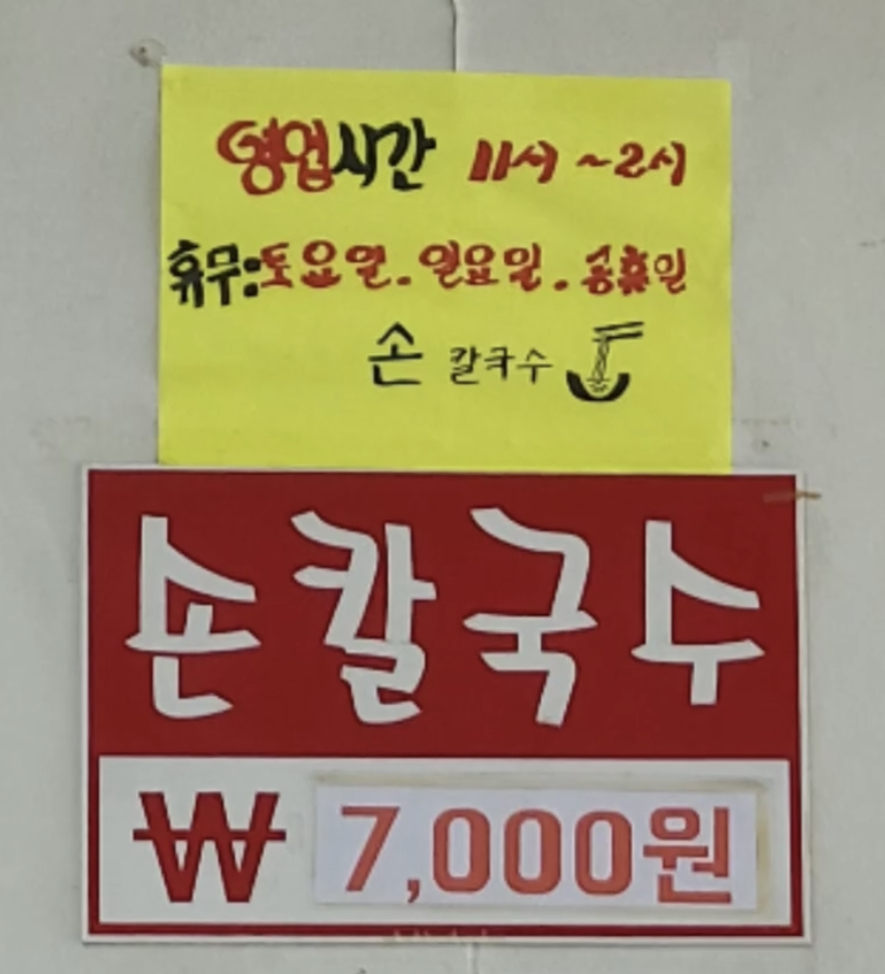 영업시간 11시 ~2시
휴무:토요일.일요일.공휴일
손 칼국수
손칼국수
₩ 7,000원